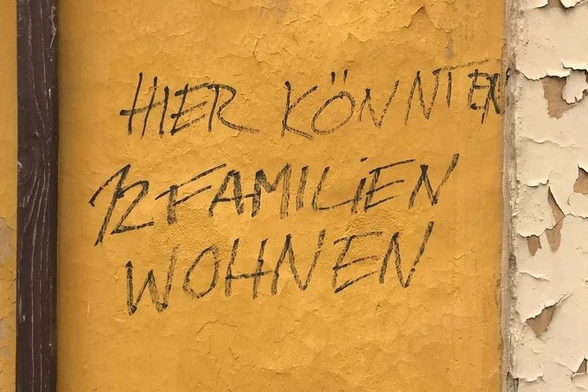 HIER KÖNNTEN
12 FAMILiEN
WOHNEN